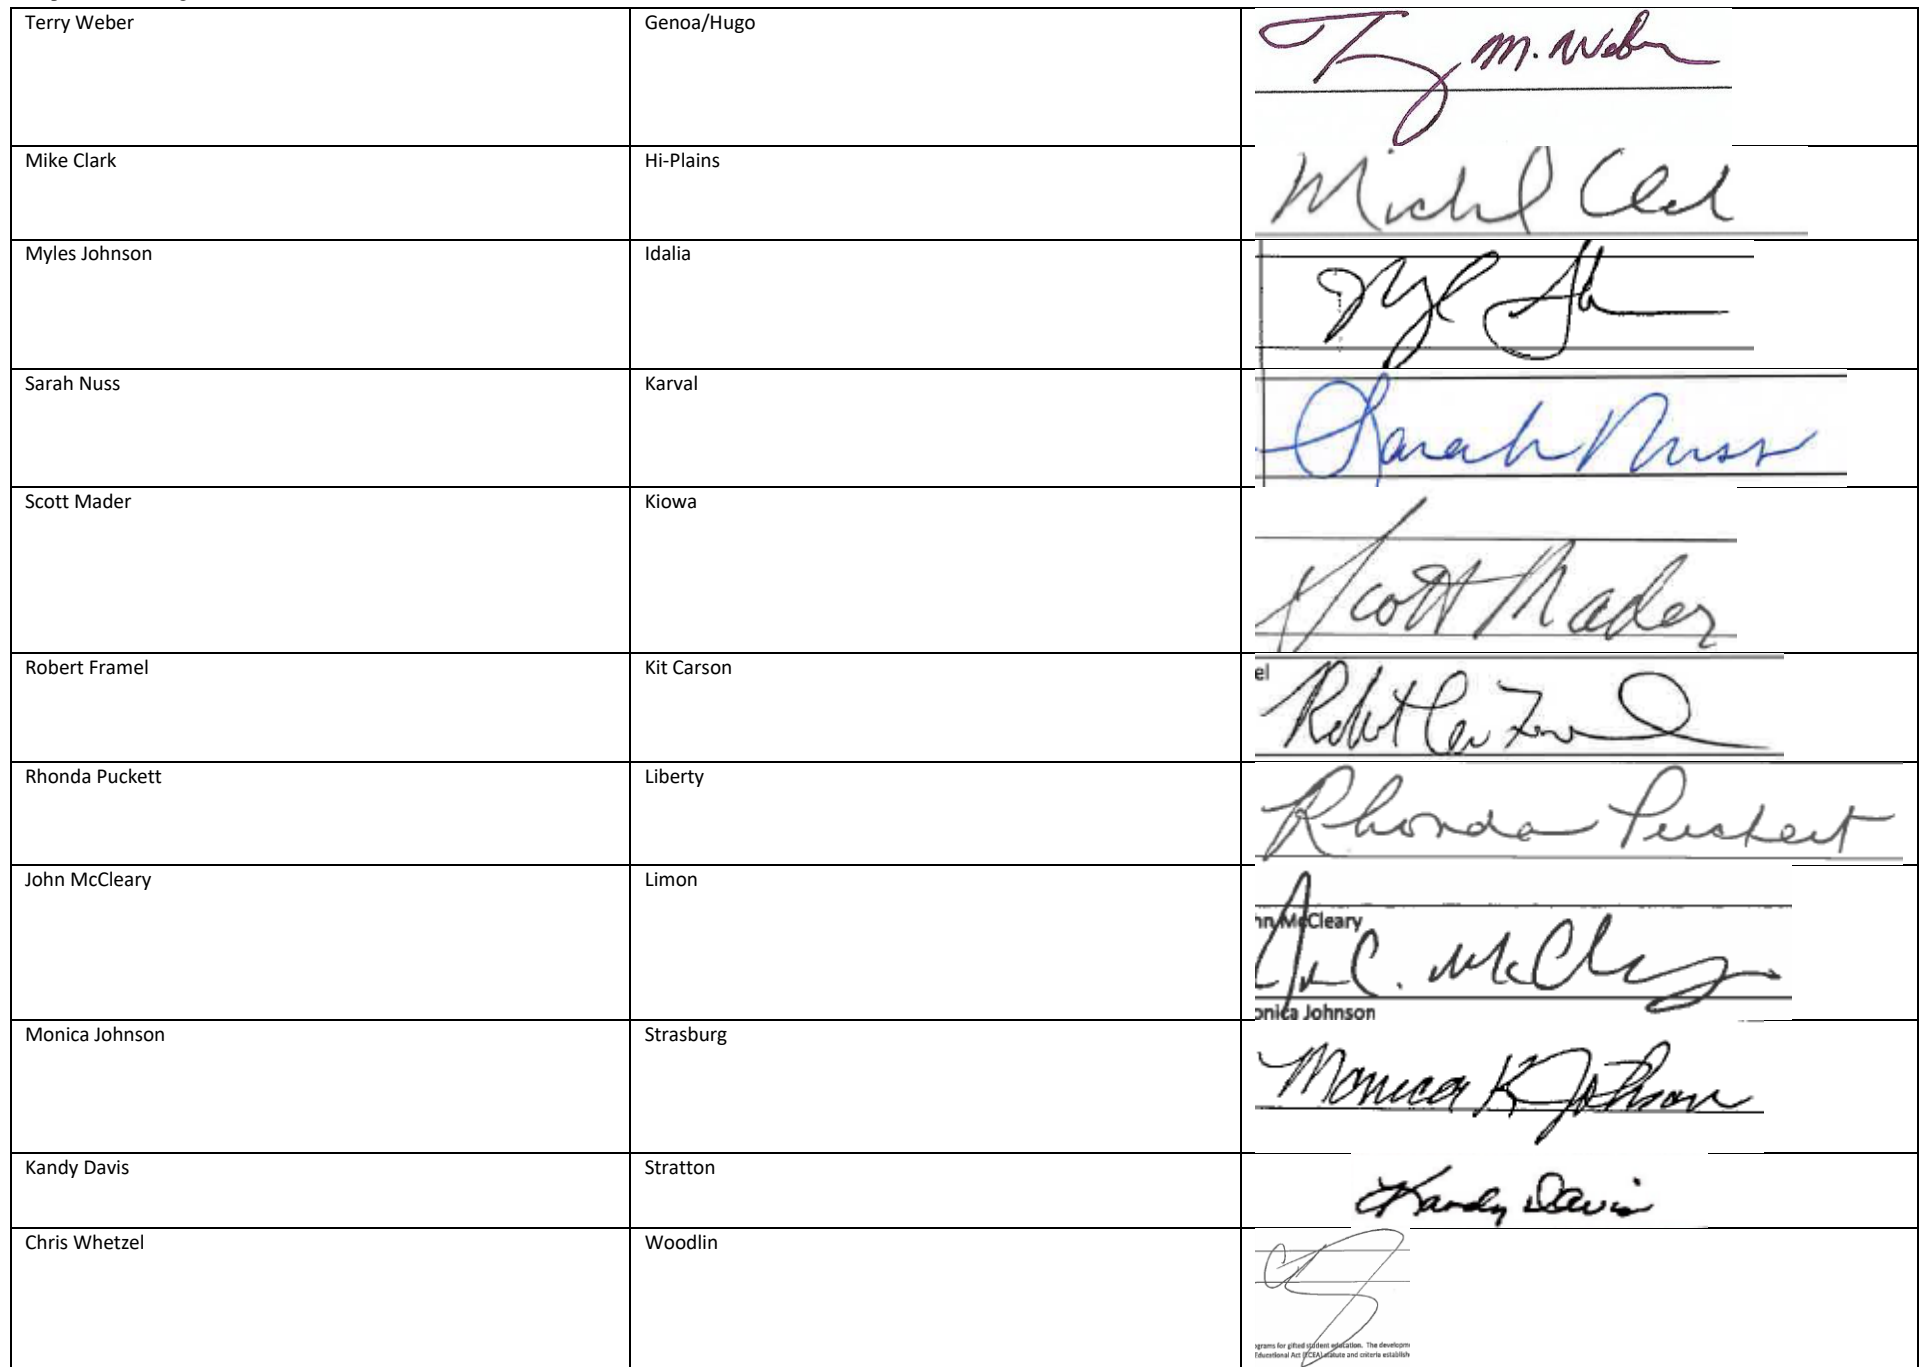 Terry Weber Genoa/Hugo T M. Weber
Mike Clark Hi-Plains Michael Clark
Myles Johnson Idalia
Sarah Nuss Karval Sarah Nuss
Scott Mader Kiowa Scott Mader
Robert Framel Kit Carson
el
Robert
Rhonda Puckett Liberty Rhonda Puckett
John McCleary Limon
nn McCleary
C. McCleary
onica Johnson
Monica Johnson Strasburg Monica K Johnson
Kandy Davis Stratton Kandy Davis
Chris Whetzel Woodlin
ograms for gifted student education. The developm
Educational Act (ECEA) statute and criteria establish